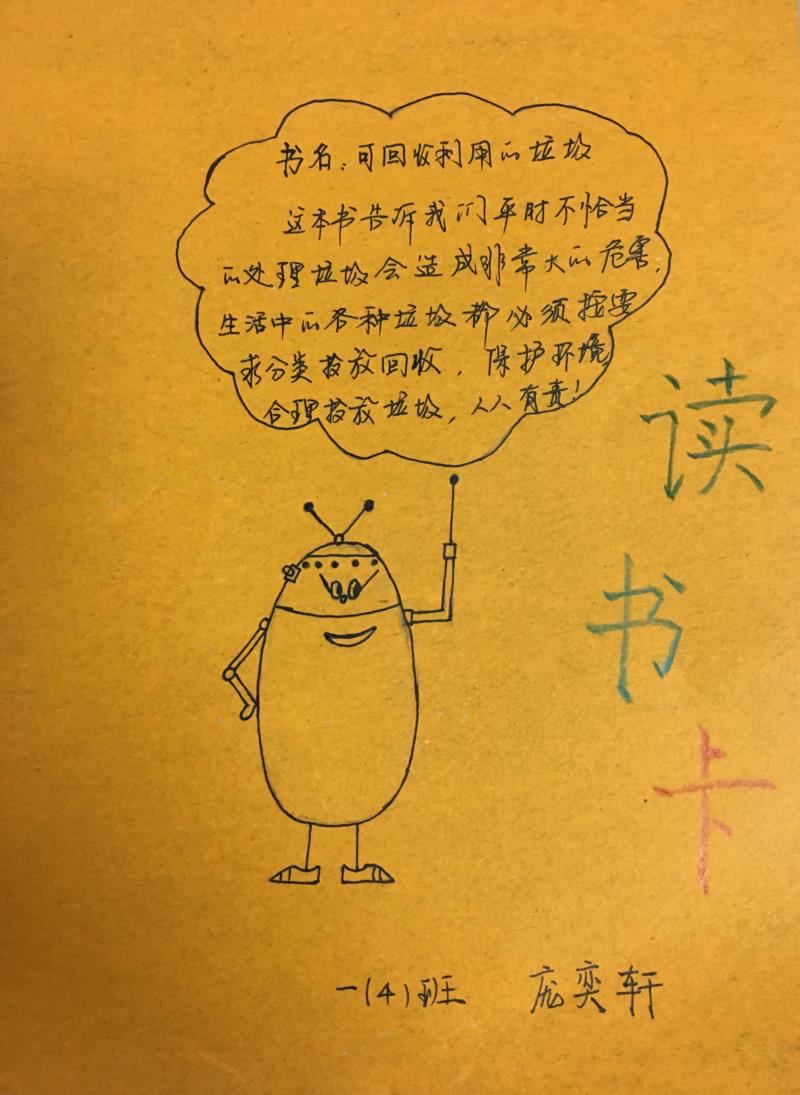 书名：可回收利用的垃圾
这本书告诉我们平时不恰当
的处理垃圾会造成非常大的危害，
生活中的各种垃圾都必须按要
求分类投放回收，保护环境
合理投放垃圾，人人有责！
读书卡
一（4）班 庞奕轩